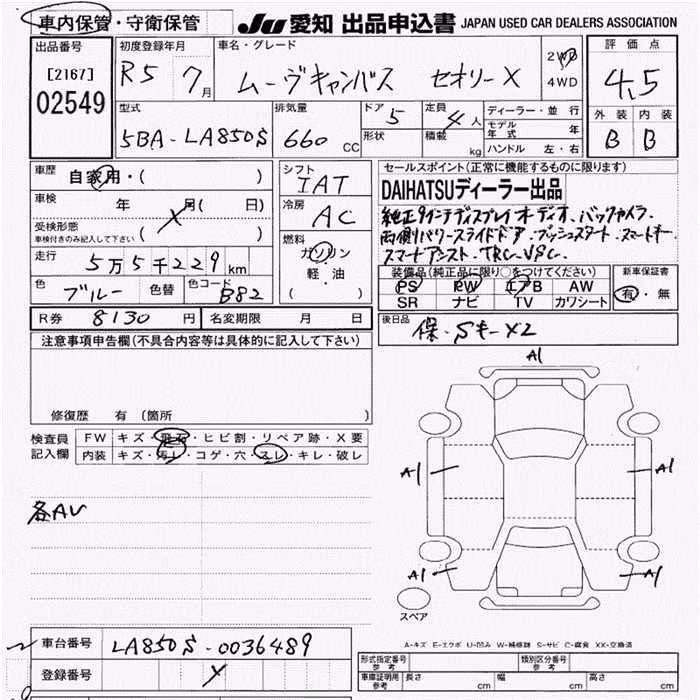 車内保管・守衛保管 JU 愛知 出品申込書 JAPAN USED CAR DEALERS ASSOCIATION
出品番号 初度登録年月 車名・グレード 評価点
[2167] R5 7月 ムーヴキャンバス セオリーX 2WD 4WD 4.5
02549 型式 排気量 ドア 5 定員 4人 ディーラー・並行 外装 内装
5BA-LA850S 660 CC 形状 積載 kg モデル年式 年 B B
ハンドル 左・右
車歴 自家用・( ) シフト IAT セールスポイント(正常に機能するものに限ります)
車検 年 月( 日) 冷房 AC DAIHATSUディーラー出品
受検形態 車検付きのみ記入して下さい ( ) 純正9インチディスプレイオーディオ、バックカメラ、
走行 5万5千229km 燃料 ガソリン 両側パワースライドドア、プッシュスタート、スマートキー
軽油 ( ) スマートアシスト、TRC、VSC、
色 ブルー 色替 色コード B82 装備品(純正品に限り○をつけてください) 新車保証書
PS PW エアB AW 有・無
SR ナビ TV カワシート
R券 8130円 名変期限 月 日 後日品 保・Sキーx2
注意事項申告欄(不具合内容等は具体的に記入して下さい)
A1
修復歴 有(箇所 )
検査員 記入欄 FW キズ・飛石・ヒビ割・リペア跡・X要
内装 キズ・汚レ・コゲ・穴・スレ・キレ・破レ
A1 A1
各AU
A1 A1
スペア
A-キズ E-エクボ U-凹み W-補修跡 S-サビ C-腐食 XX-交換済
車台番号 LA850S-0036489
登録番号
形式指定番号 参考 類別区分番号 参考
車庫証明用 参考 長さ cm 幅 cm 高さ cm